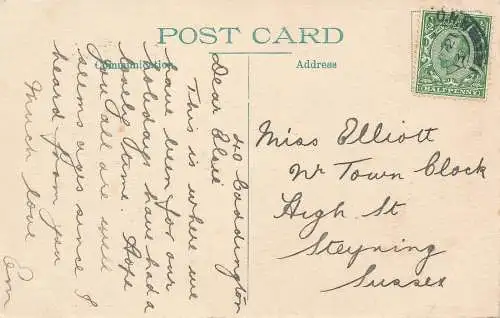 POST CARD
Communication.
Address
40 Coddington
Dear Elsie
This is where we
have been for our
holidays have had a
lovely time. Hope
you all are well
seems ages since I
heard from you
Much love Em
Miss Elliott
Nr Town Clock
High St
Steyning
Sussex
HALFPENNY